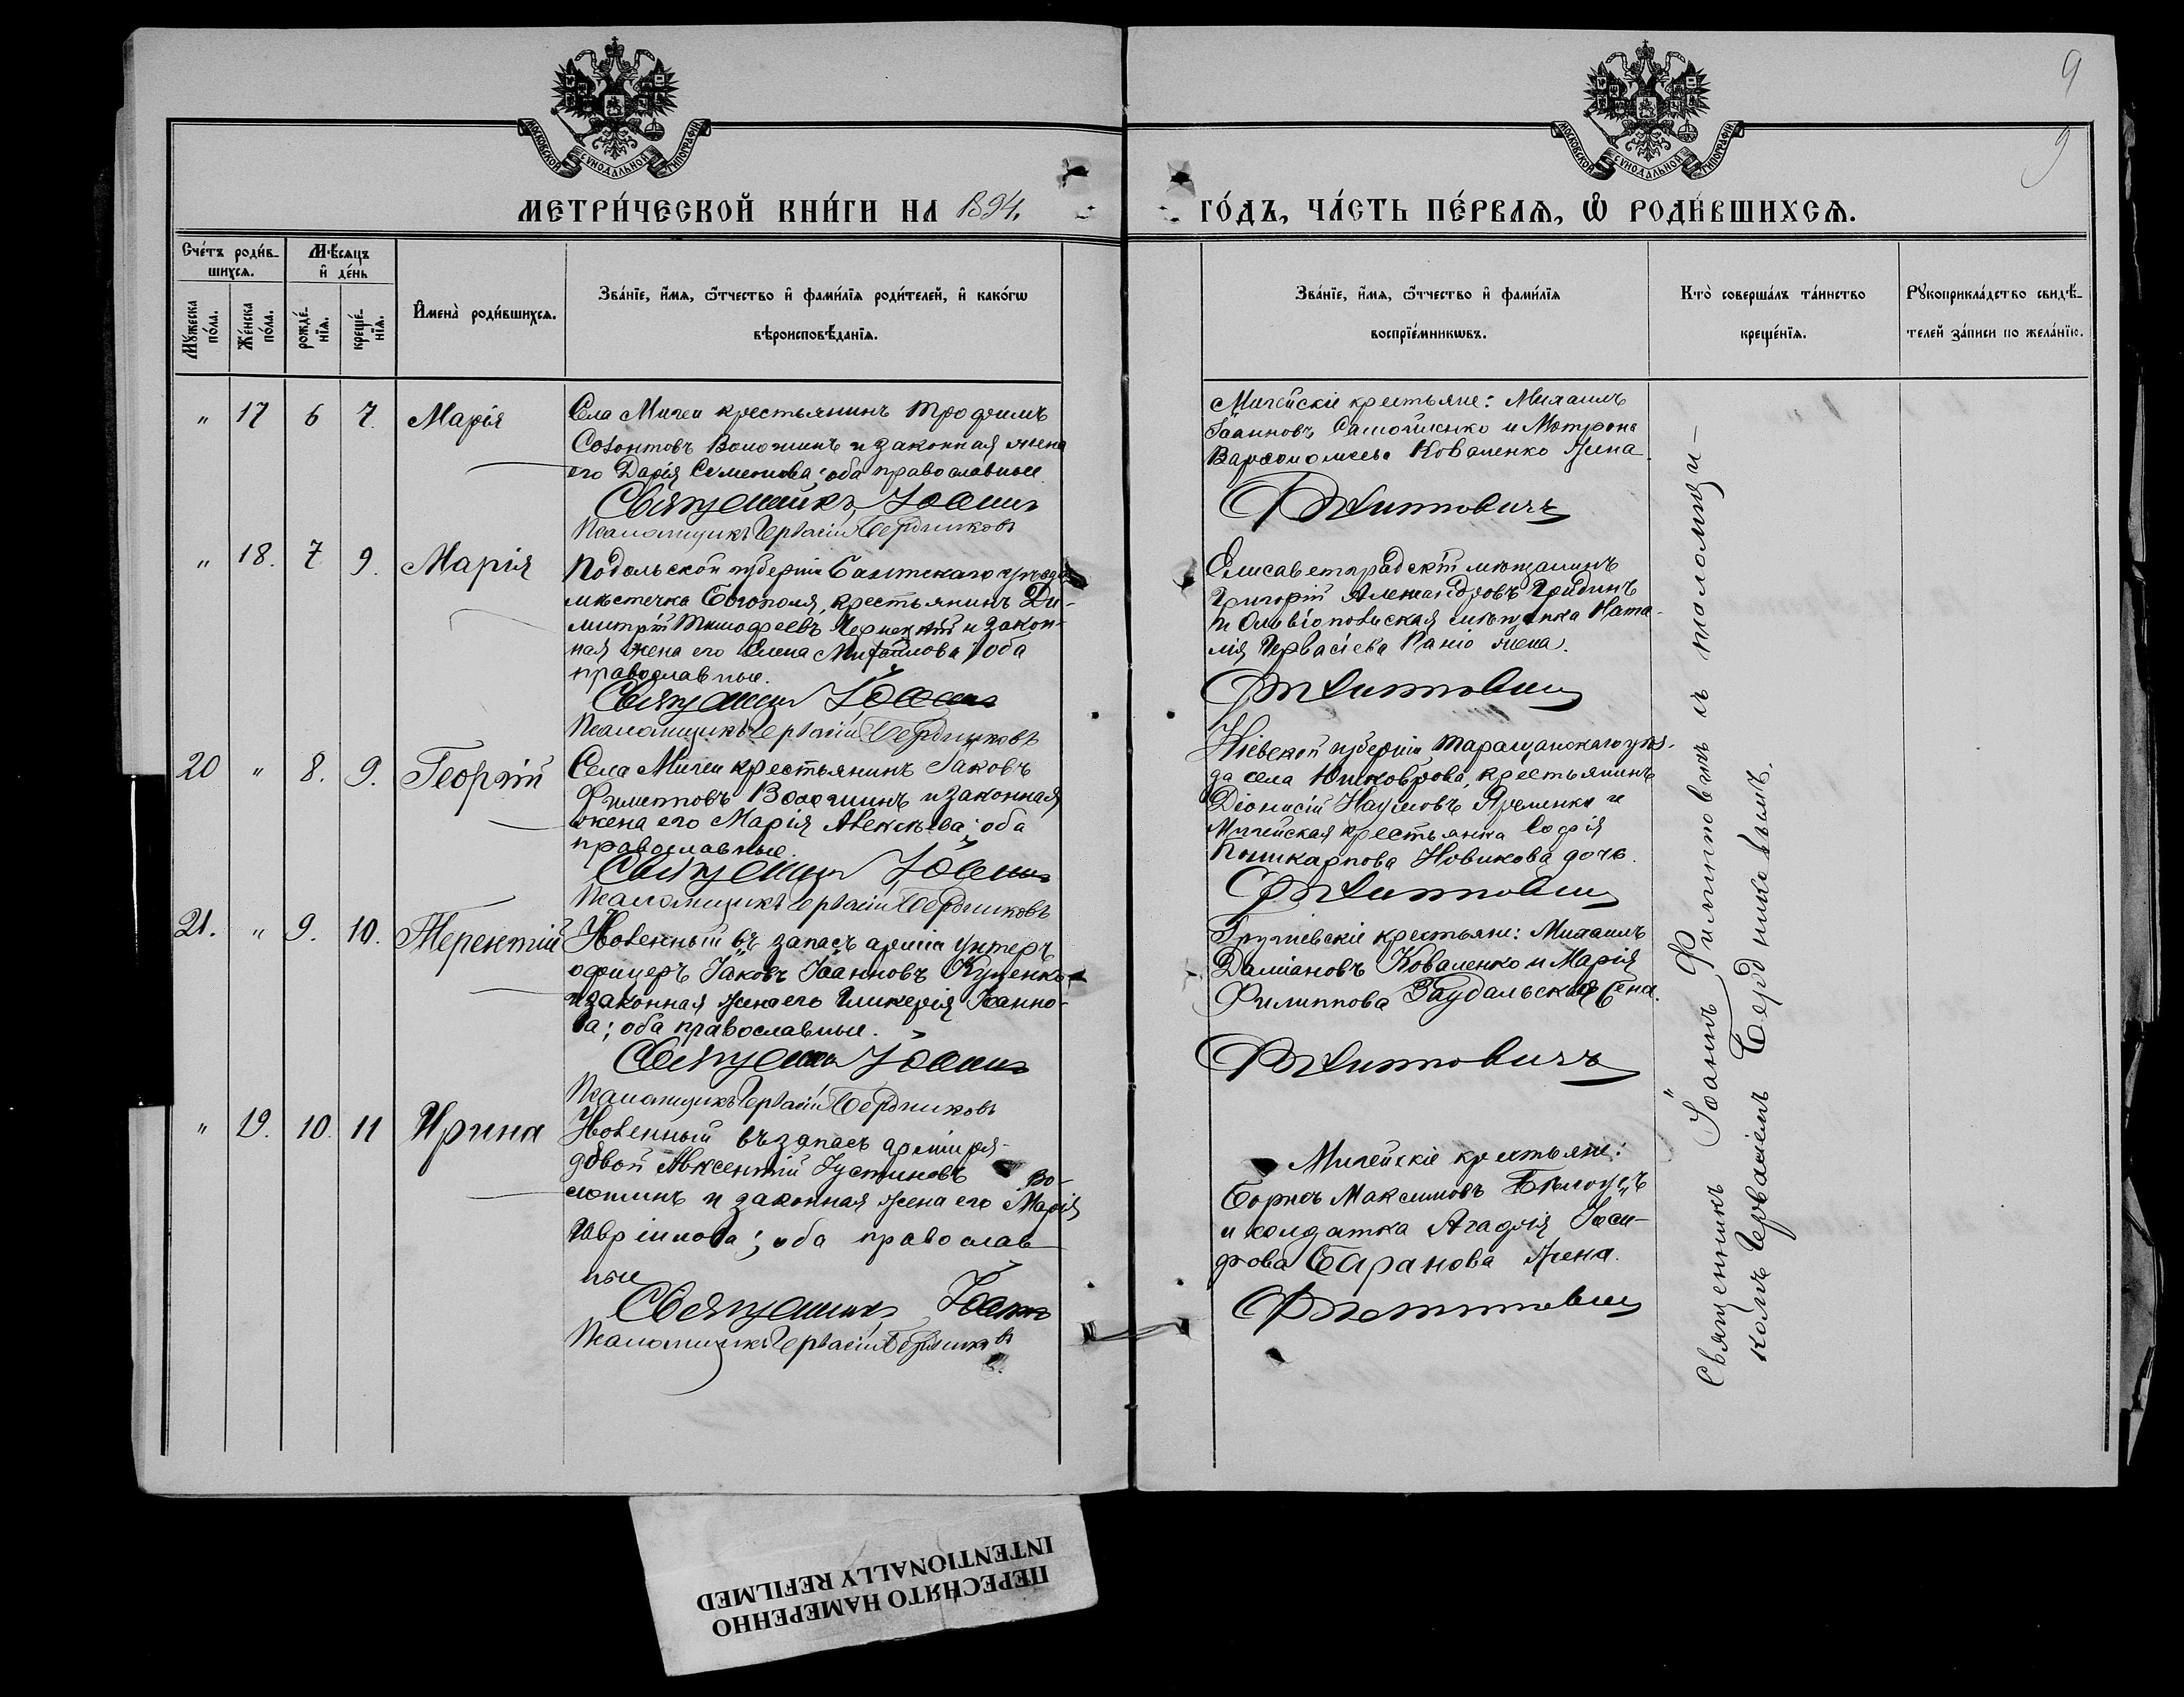 9
9
МОСКОВСКОЙ СУНОДАЛЬНОЙ ТИПОГРАФІИ
МОСКОВСКОЙ СУНОДАЛЬНОЙ ТИПОГРАФІИ
МЕТРИ́ЧЕСКОЙ КНИ́ГИ НА 1894.
ГО́ДЪ, ЧА́СТЬ ПЕ́РВАѦ, Ѡ҆ РОДИ́ВШИХСѦ.
Сче́тъ роди́в-
шихсѧ.
Мѣ́сѧцъ
и҆ де́нь
Мꙋ́жеска
по́ла.
Же́нска
по́ла.
рожде́-
нїѧ.
креще́-
нїѧ.
И҆мена̀ роди́вшихсѧ.
Зва́нїе, и҆́мѧ, ѻ҆́тчество и҆ фами́лїѧ роди́телей, и҆ како́гѡ
вѣроисповѣ́данїѧ.
Зва́нїе, и҆́мѧ, ѻ҆́тчество и҆ фами́лїѧ
воспрїе́мникѡвъ.
Кто̀ соверша́лъ та́инство
креще́нїѧ.
Рꙋкоприкла́дство свидѣ́-
телей за́писи по жела́нїю.
" 17 6 7. Марія
Села Мигеи крестьянинъ Трофимъ
Созонтовъ Волошинъ и законная жена
его Дарія Семенова; оба православные.
Священникъ Іоаннъ
Псаломщикъ Гервасій Бердниковъ
Мигейскіе крестьяне: Михаилъ
Іоанновъ Самойленко и Мотрона
Варфоломеева Коваленко жена.
Филипповичъ
" 18. 7 9. Марія
Подольской губерніи Балтскаго уѣзда
мѣстечка Богополя, крестьянинъ Ди-
митрій Тимофеевъ и закон-
ная жена его Елена Михайлова; оба
православные.
Священникъ Іоаннъ
Псаломщикъ Гервасій Бердниковъ
Елисаветградскій мѣщанинъ
Григорій Александровъ Гридинъ
и Ольвіопольская мѣщанка Ната-
лія Гервасіева жена.
Филипповичъ
20 " 8. 9. Георгій
Села Мигеи крестьянинъ Іаковъ
Филипповъ Волошинъ и законная
жена его Марія Алексѣева; оба
православные.
Священникъ Іоаннъ
Псаломщикъ Гервасій Бердниковъ
Кіевской губерніи Таращанскаго уѣз-
да села крестьянинъ
Діонисій Наумовъ Яременко и
Мигейская крестьянка Софія
Поликарпова Новикова дочь.
Филипповичъ
21. " 9. 10. Терентій
Уволенный въ запасъ арміи унтеръ
офицеръ Іаковъ Іоанновъ Куценко
и законная жена его Гликерія Іоанно-
ва; оба православные.
Священникъ Іоаннъ
Псаломщикъ Гервасій Бердниковъ
крестьяне: Михаилъ
Даміановъ Коваленко и Марія
Филиппова жена.
Филипповичъ
" 19. 10. 11 Ирина
Уволенный въ запасъ арміи ря-
довой Авксентій Іустиновъ Во-
лошинъ и законная жена его Марія
Гавріилова; оба православ-
ные
Священникъ Іоаннъ
Псаломщикъ Гервасій Бердниковъ
Мигейскіе крестьяне:
Борисъ Максимовъ Бѣлоусъ
и солдатка Агафія Іоси-
фова Баранова жена.
Филипповичъ
Священникъ Іоаннъ Филипповичъ съ псаломщи-
комъ Гервасіемъ Бердниковымъ.
ПЕРЕСНЯТО НАМЕРЕННО
INTENTIONALLY REFILMED